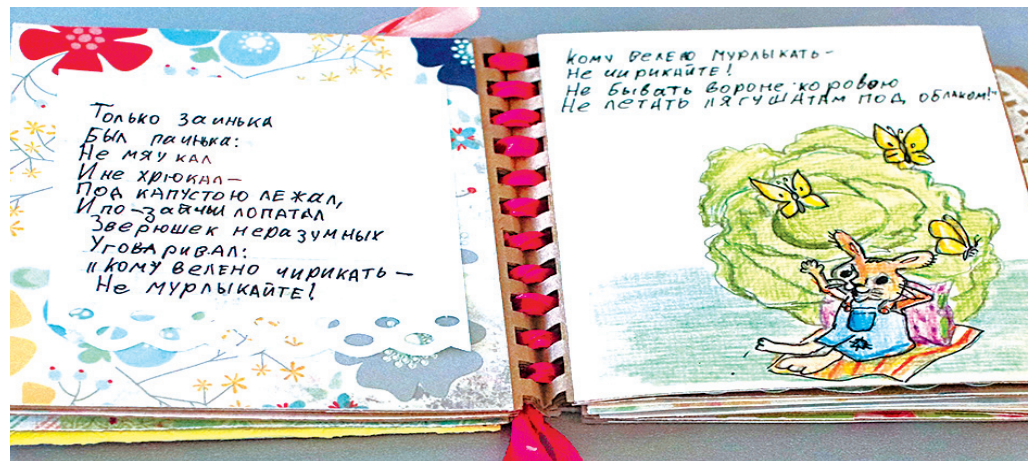 Только заинька
Был паинька:
Не мяукал
И не хрюкал—
Под капустою лежал,
И по-зайчьи лопатал
Зверюшек неразумных
Уговаривал:
"Кому велено чирикать—
Не мурлыкайте!
Кому велено мурлыкать—
Не чирикайте!
Не бывать вороне коровою
Не летать лягушатам под облаком!"